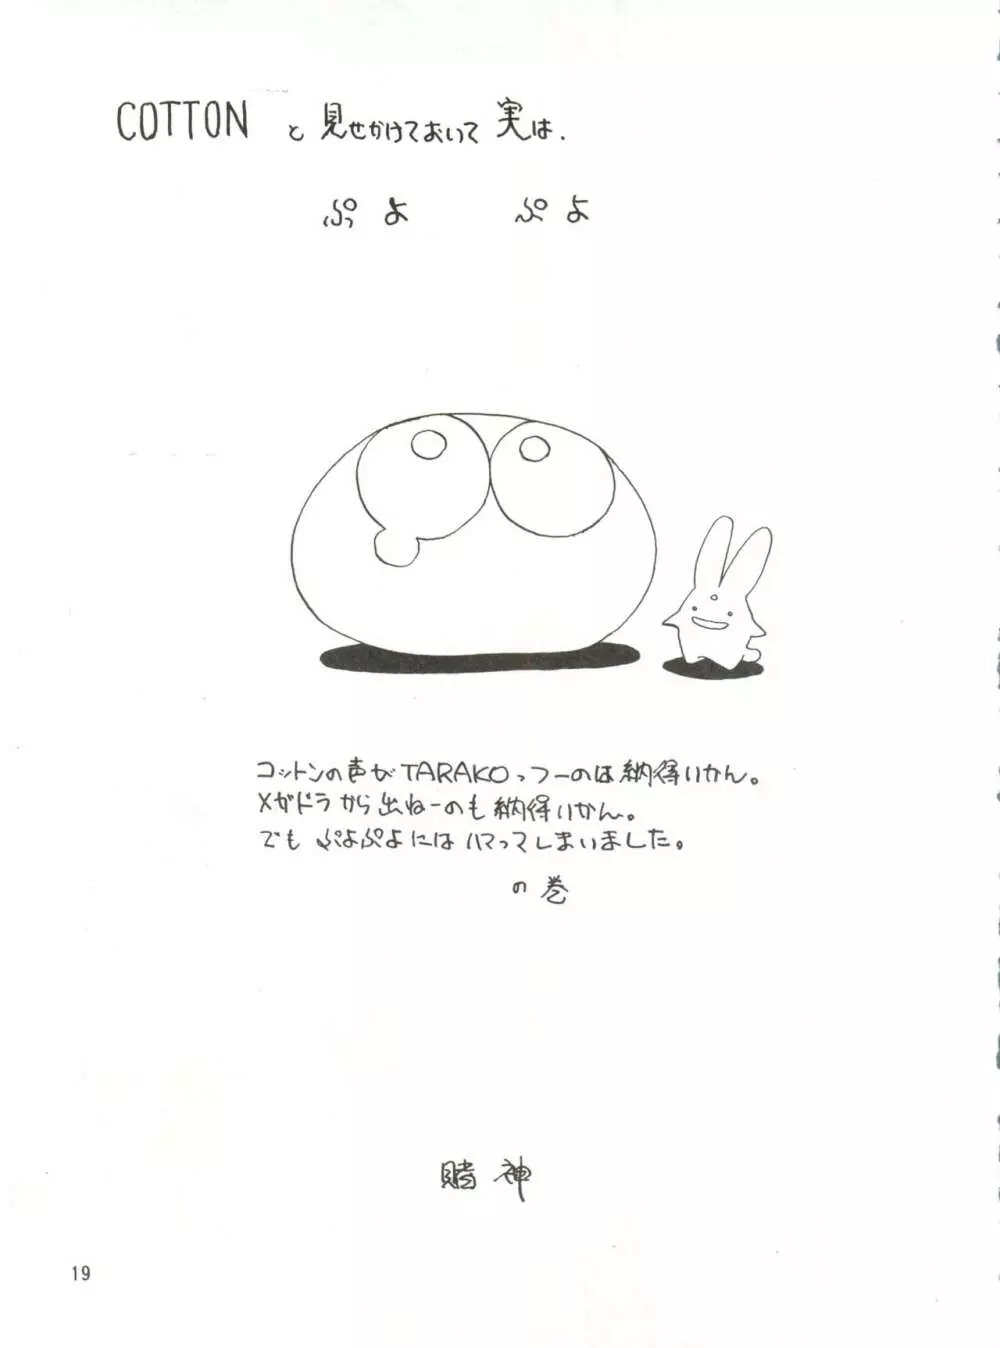 COTTON と 見せかけておいて 実は.
ぷよ ぷよ
コットンの声がTARAKOっつーのは納得いかん。
メガドラから出ねーのも納得いかん。
でも ぷよぷよにはハマってしまいました。
の巻
賭神
19